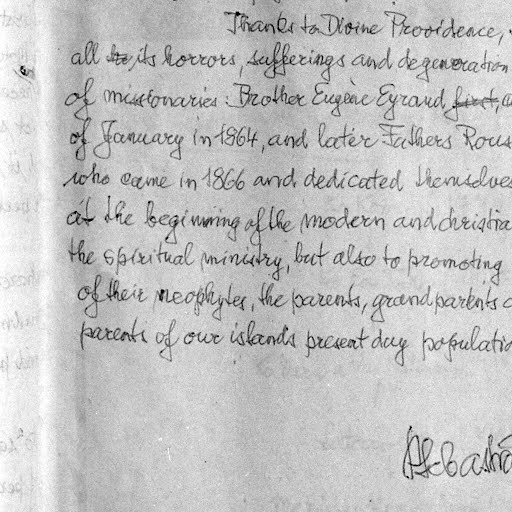 Thanks to Divine Providence,
all to its horrors, sufferings and degeneration
of missionaries: Brother Eugène Eyraud first,
of January in 1864, and later Fathers Rous
who came in 1866 and dedicated themselve
at the beginning of the modern and christia
the spiritual ministry, but also to promoting
of their neophytes, the parents, grandparents
parents of our island's present day populatio